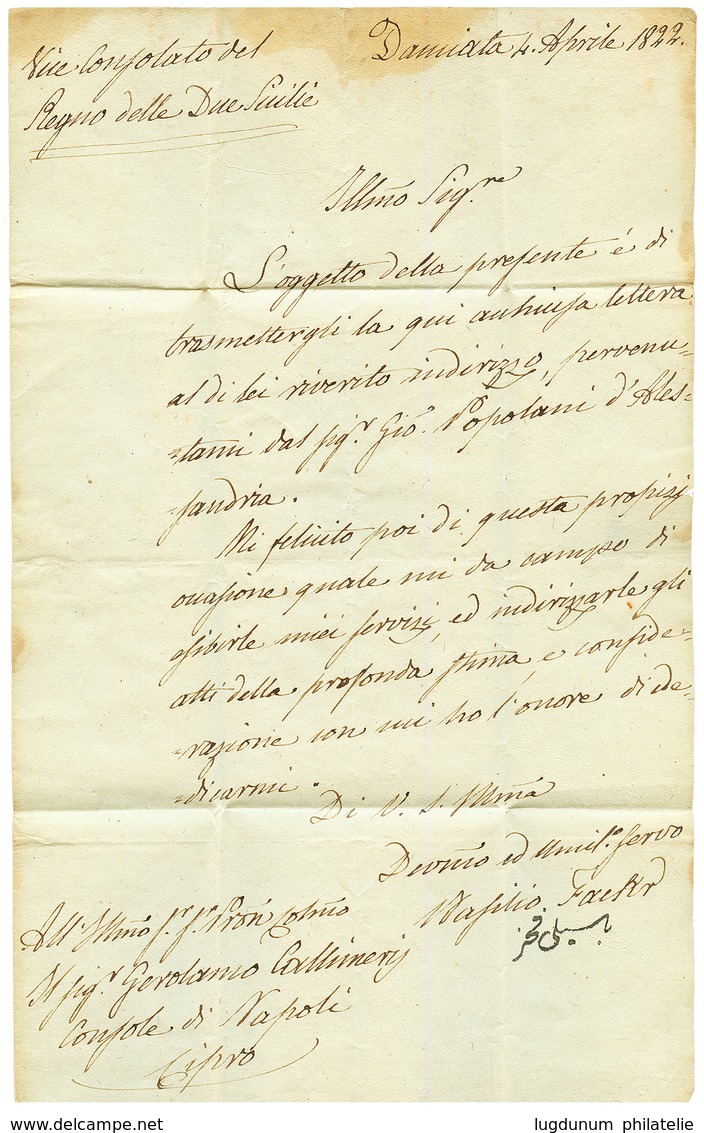 Vice Consolato del
Regno delle Due Sicilie
Damiata 4. Aprile 1822.
Illmo Sigre
L'oggetto della presente é di
trasmettergli la qui acchiusa lettera
al di lei riverito indirizzo, pervenu-
-tami dal sigr. Gio. Popolani d'Ales-
-sandria.
Mi felicito poi di questa propizi
occasione quale mi da campo di
esibirle miei servizi, ed indirizzarle gli
atti della profonda stima, e conside-
-razione con cui ho l'onore di de-
-dicarmi.
Di V. S. Illma
Devmo ed Umilo servo
Basilio Fackr
باسيلي فخر
All' Illmo Sr. Sr. Pron Colmo
Il sigr. Gerolamo Callimerj
Console di Napoli
Cipro
www.delcampe.net
lugdunum philatelie